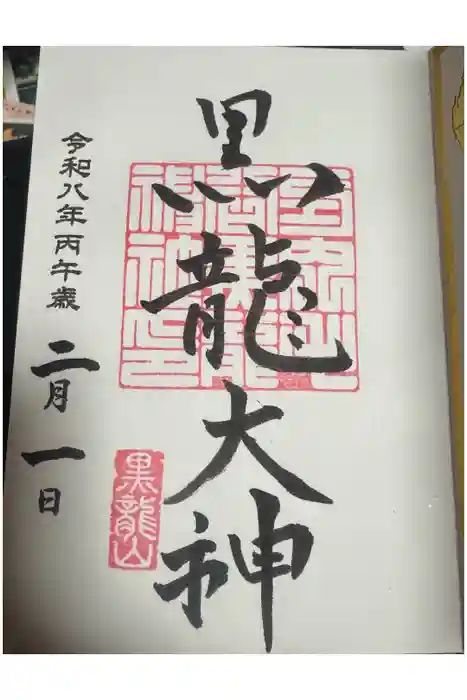 黒龍大神
黒龍山
令和八年丙午歳
二月一日